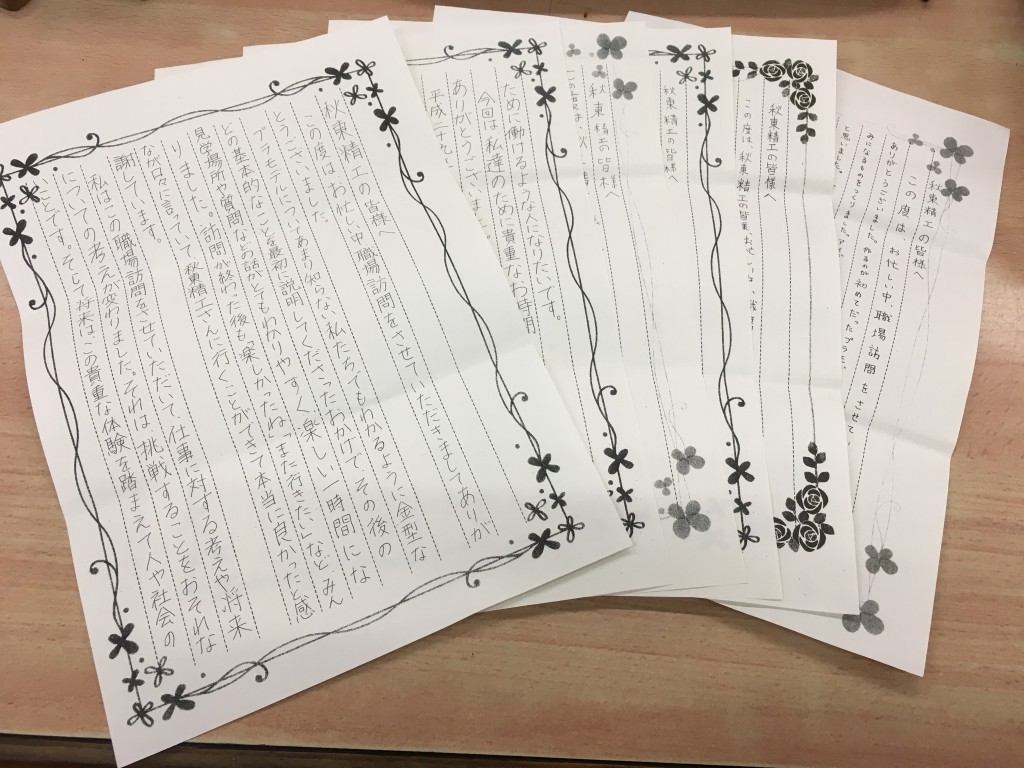 秋東精工の皆様へ
この度はお忙しい中、職場訪問をさせていただきましてありが
とうございました。
プラモデルについてあまり知らない私たちでもわかるように金型な
どの基本的なことを最初に説明してくださったおかげで、その後の
見学場所や質問なお話がとてもわかりやすく楽しい一時間にな
りました。訪問が終わった後も「楽しかったね」「また行きたい」などみん
なが口々に言っていて秋東精工さんに行くことができて本当に良かったと感
謝しています。
私はこの職場訪問をさせていただいて、仕事に対する考えや将来
についての考えが変わりました。それは、挑戦することをおそれな
いことです。そして、将来はこの貴重な体験を踏まえて人や社会の
ために働けるような人になりたいです。
今回は私達のために貴重なお時間
ありがとうござい
平成二十九
秋東精工の皆様へ
秋東精工の皆様へ
秋東精工の皆様へ
この度は、秋東精工の皆
秋東精工の皆様へ
この度は、お忙しい中、職場訪問をさせて
ありがとうございました。
と思いました。